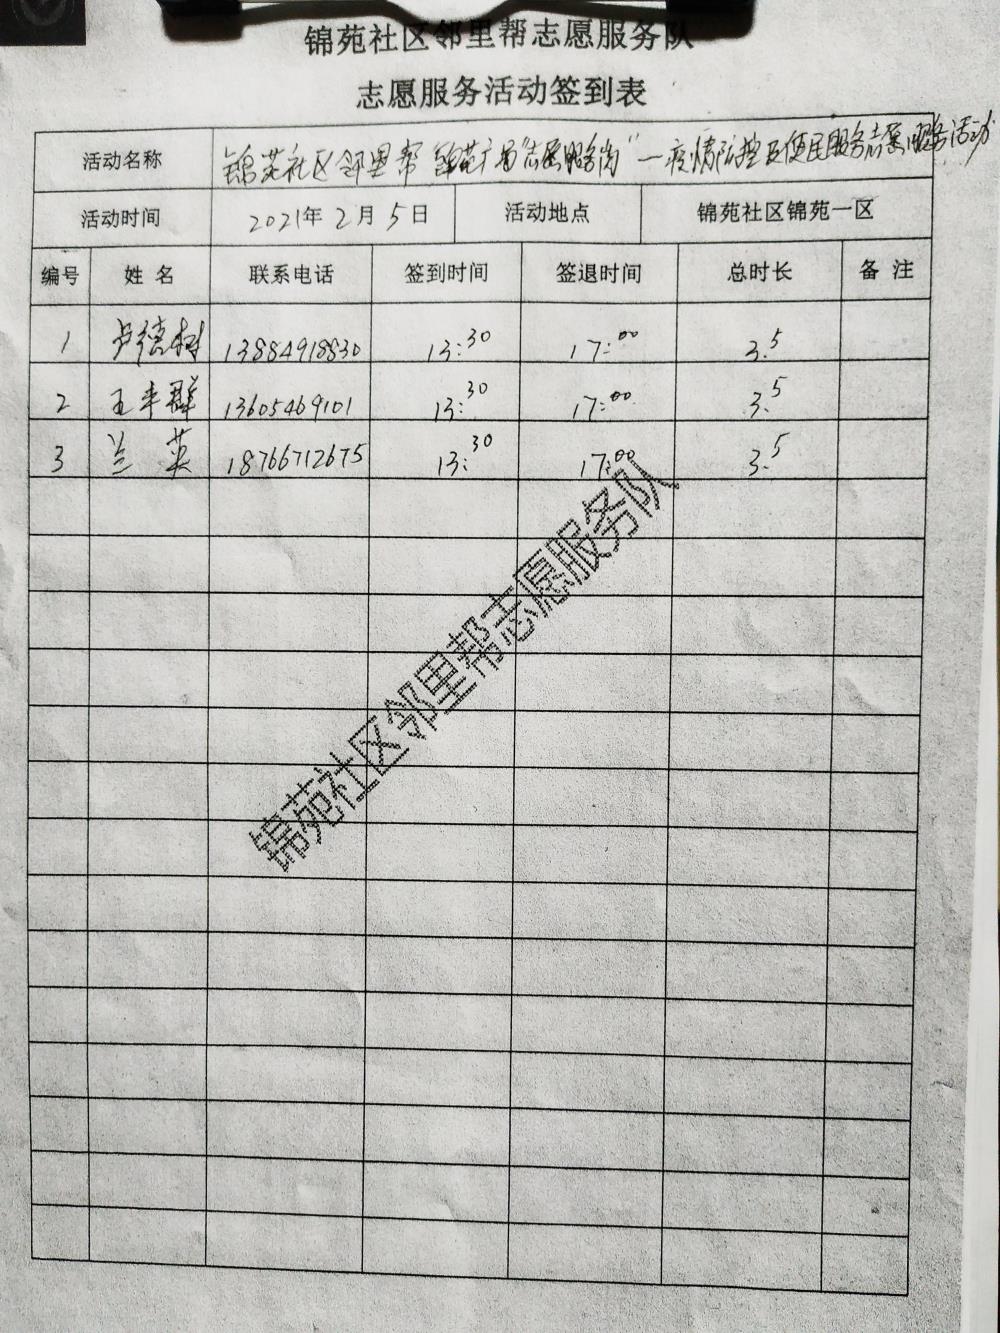 锦苑社区邻里帮志愿服务队
志愿服务活动签到表
活动名称 锦苑社区邻里帮 锦苑广场“志愿服务岗”—疫情防控及便民服务志愿服务活动
活动时间 2021年2月5日 活动地点 锦苑社区锦苑一区
编号 姓名 联系电话 签到时间 签退时间 总时长 备注
1 卢德树 13884918830 13:30 17:00 3.5
2 王丰群 13605469101 13:30 17:00 3.5
3 兰英 18766712675 13:30 17:00 3.5
锦苑社区邻里帮志愿服务队